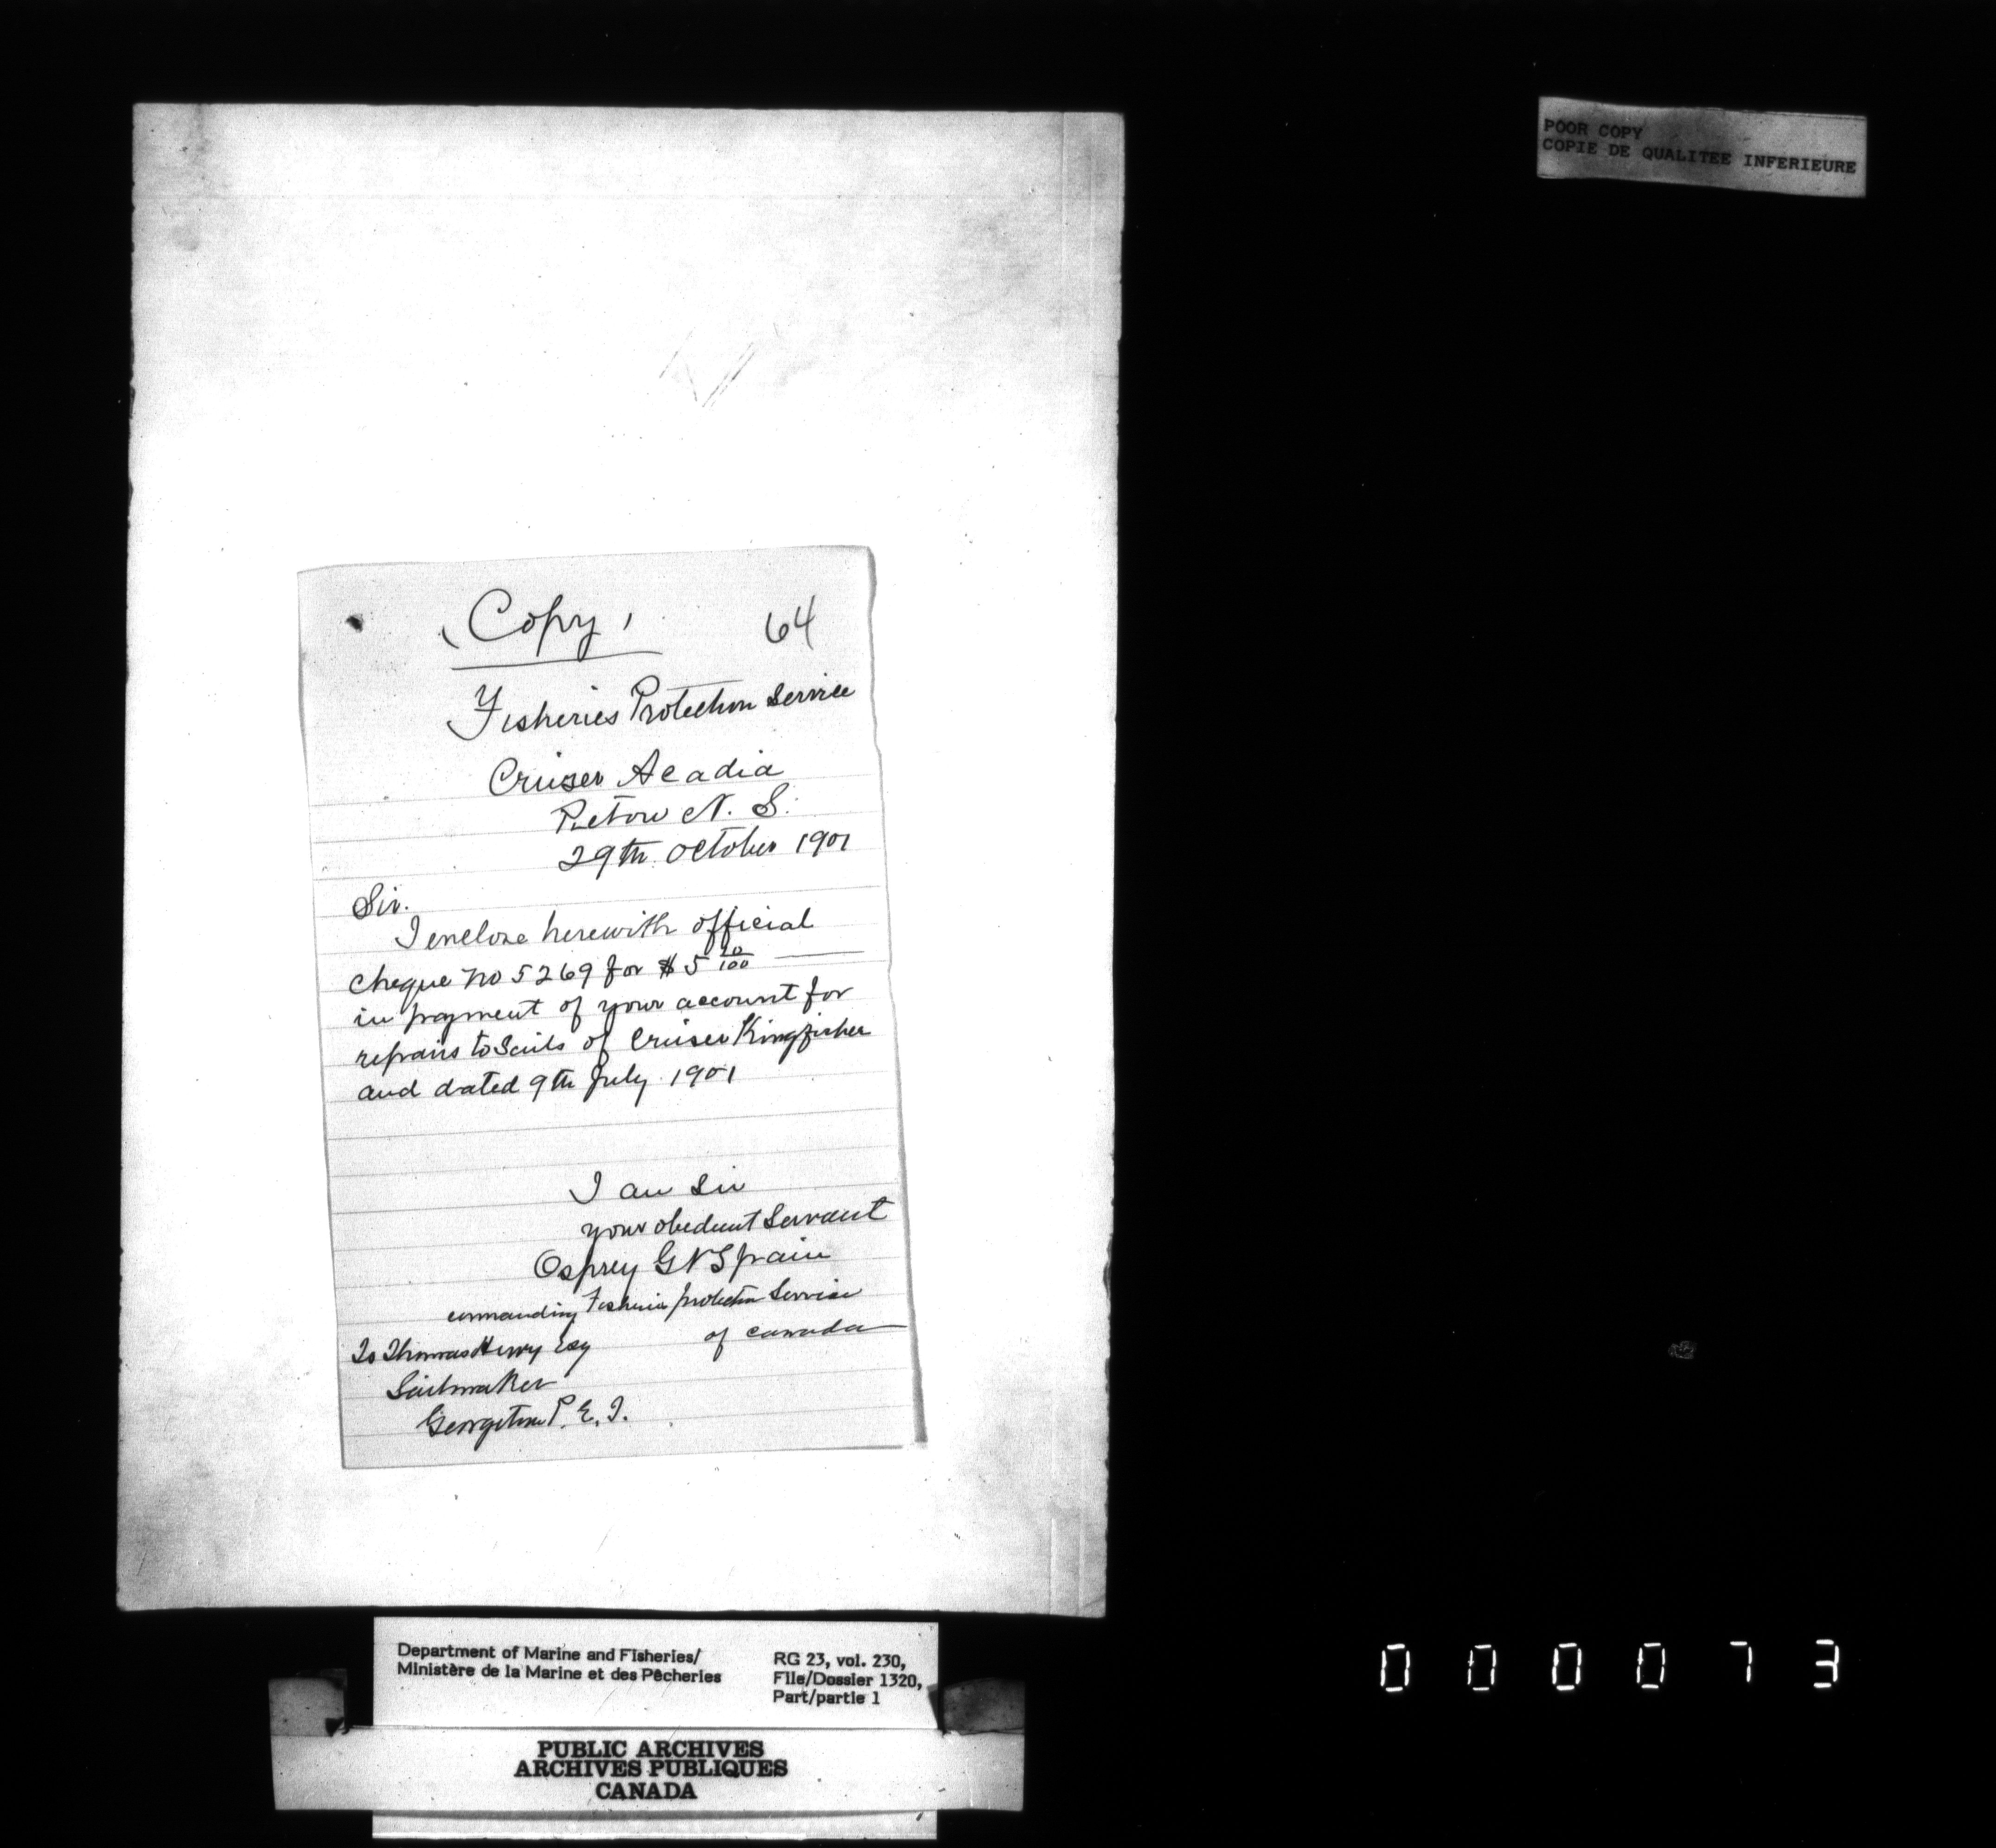 POOR COPY
COPIE DE QUALITEE INFERIEURE
(Copy) 64
Fisheries Protection Service
Cruiser Acadia
Pictou N. S.
29th October 1901
Sir.
I enclose herewith official
cheque No 5269 for $5 20/100
in payment of your account for
repairs to Sails of Cruiser Kingfisher
and dated 9th July 1901
I am Sir
your obedient Servant
Osprey G V Spain
commanding Fisheries protection Service
of Canada
To Thomas Henry Esq
Sailmaker
Georgetown P. E. I.
Department of Marine and Fisheries/
Ministère de la Marine et des Pêcheries
RG 23, vol. 230,
File/Dossier 1320,
Part/partie 1
PUBLIC ARCHIVES
ARCHIVES PUBLIQUES
CANADA
000073